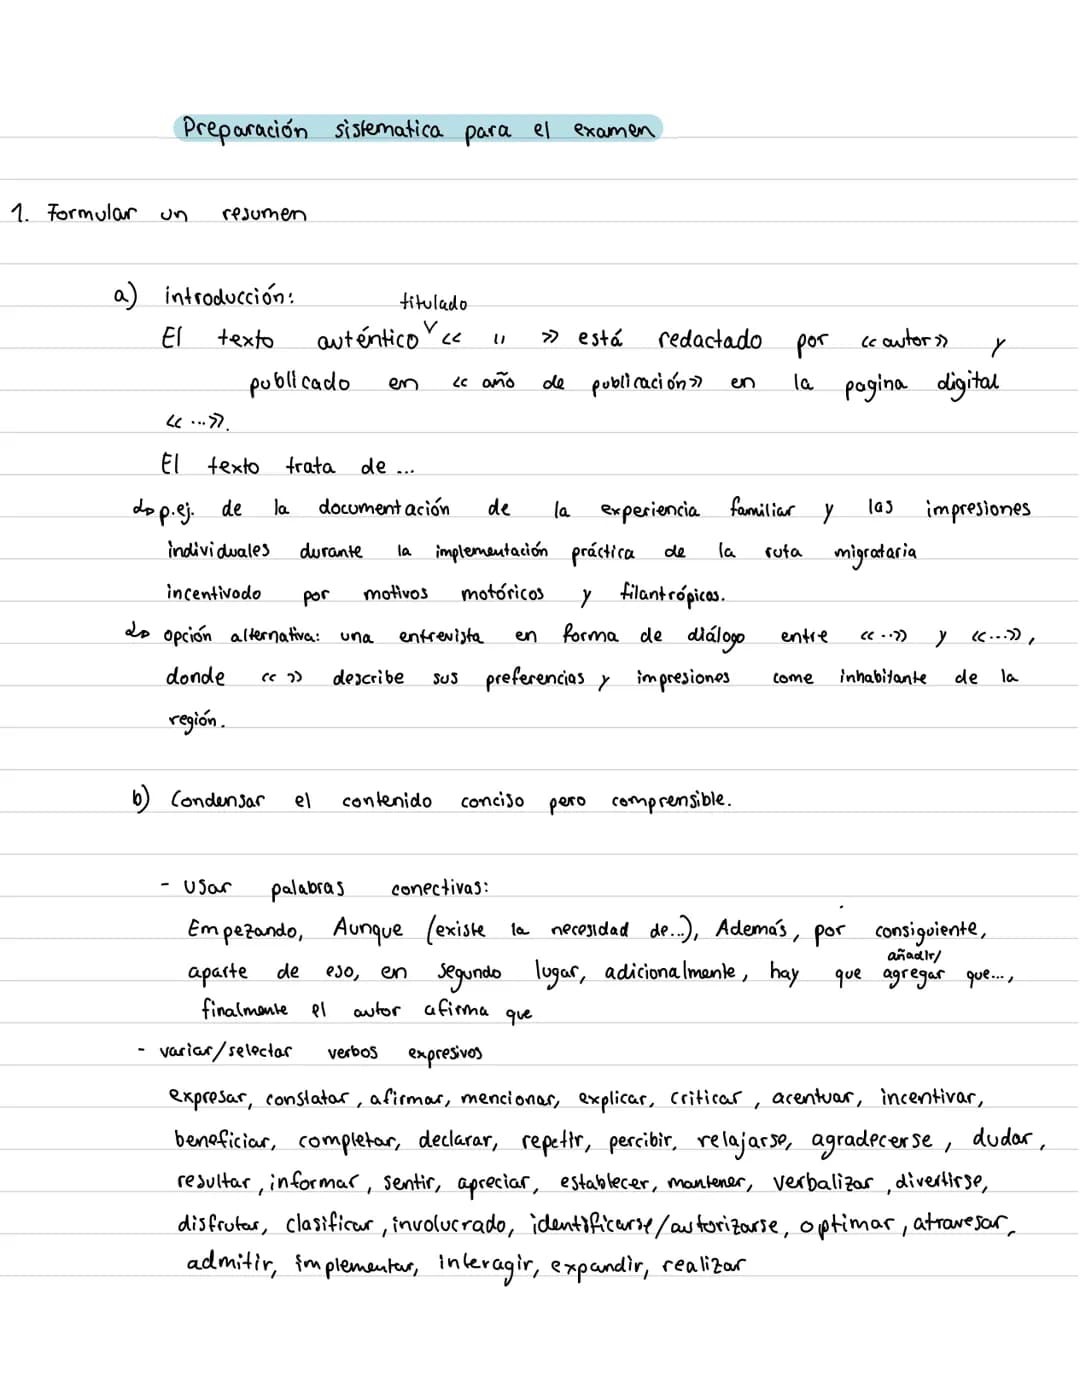 Preparación sistematica para el examen
1. Formular un resumen
a) introducción:
titulado
El texto auténtico ˅ << " >> está redactado por <<autor>> y
publicado en << año de publicación>> en la pagina digital
<< ...>>.
El texto trata de ...
↳ p.ej. de la documentación de la experiencia familiar y las impresiones
individuales durante la implementación práctica de la ruta migrataria
incentivado por motivos motóricos y filantrópicos.
↳ opción alternativa: una entrevista en forma de diálogo entre <<...>> y <<...>>,
donde << >> describe sus preferencias y impresiones come inhabitante de la
región.
b) Condensar el contenido conciso pero comprensible.
- Usar palabras conectivas:
Empezando, Aunque (existe la necesidad de...), Además, por consiguiente,
añadir/
aparte de eso, en segundo lugar, adicionalmente, hay que agregar que...,
finalmente el autor afirma que
- variar/selectar verbos expresivos
expresar, constatar, afirmar, mencionar, explicar, criticar, acentuar, incentivar,
beneficiar, completar, declarar, repetir, percibir, relajarse, agradecerse, dudar,
resultar, informar, sentir, apreciar, establecer, mantener, verbalizar, divertirse,
disfrutar, clasificar, involucrado, identificarse/autorizarse, optimar, atravesar,
admitir, implementar, interagir, expandir, realizar